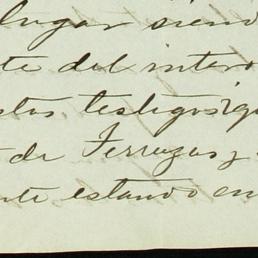 lugar siend
te del intere
stos testigos qu
de Terrazas y
nte estando en